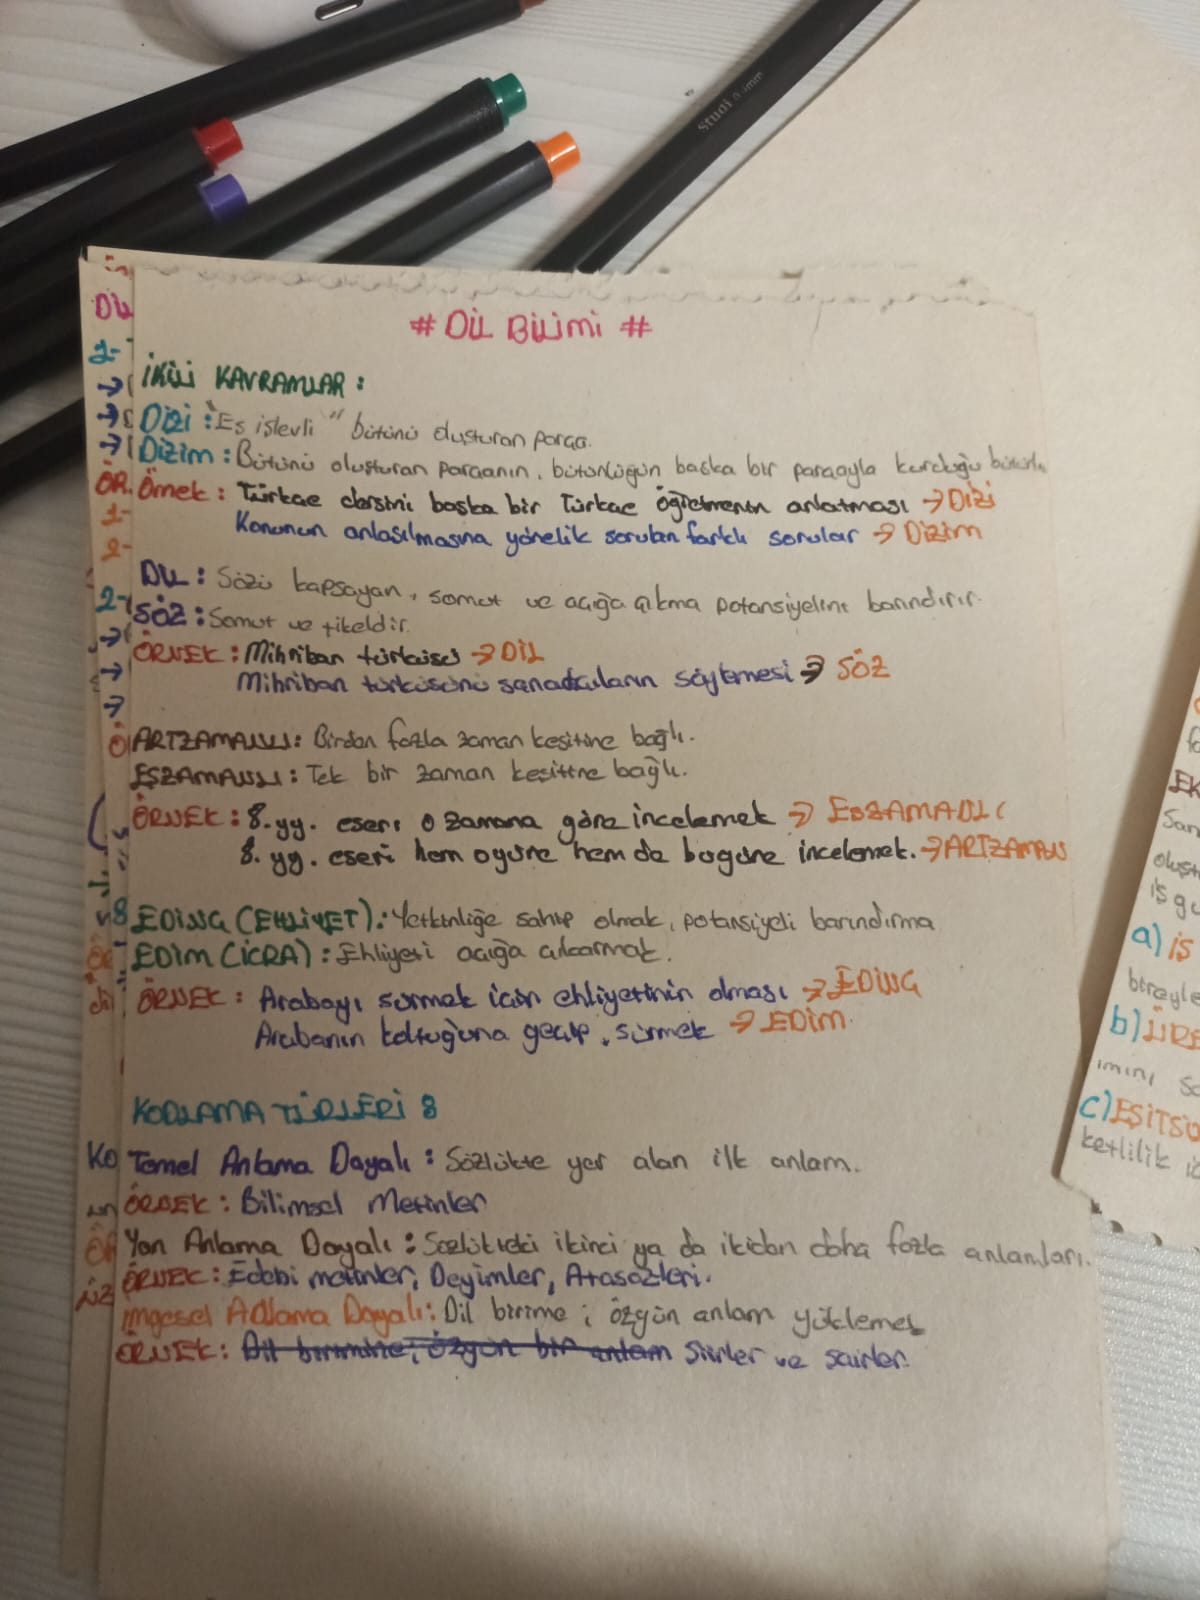 Studi 0.4mm
# DİL BİLİMİ #
İKİLİ KAVRAMLAR:
Dizi: "Eş işlevli" bütünü oluşturan parça.
Dizim: Bütünü oluşturan parçanın, bütünlüğün başka bir parçayla kurduğu
Örnek: Türkçe dersini başka bir Türkçe öğretmenin anlatması → Dizi
Konunun anlaşılmasına yönelik sorulan farklı sorular → Dizim
DİL: Sözü kapsayan, somut ve açığa çıkma potansiyelini barındırır.
SÖZ: Somut ve tikeldir.
ÖRNEK: Mihriban türküsü → DİL
Mihriban türküsünü sanatçıların söylemesi → SÖZ
ARTZAMANLI: Birden fazla zaman kesitine bağlı.
EŞZAMANLI: Tek bir zaman kesitine bağlı.
ÖRNEK: 8.yy. eseri o zamana göre incelemek → EŞZAMANLI
8.yy. eseri hem o güne hem de bugüne incelemek. → ARTZAMANLI
EDİNÇ (EHLİYET): Yetkinliğe sahip olmak, potansiyeli barındırma
EDİM (İCRA): Ehliyeti açığa çıkarmak.
ÖRNEK: Arabayı sürmek için ehliyetinin olması → EDİNÇ
Arabanın koltuğuna geçip, sürmek → EDİM
KODLAMA TÜRLERİ:
Temel Anlama Dayalı: Sözlükte yer alan ilk anlam.
ÖRNEK: Bilimsel Metinler
Yan Anlama Dayalı: Sözlükteki ikinci ya da ikiden daha fazla anlamları.
ÖRNEK: Edebi metinler, Deyimler, Atasözleri.
İmgesel Adlama Dayalı: Dil birime; özgün anlam yüklemek
ÖRNEK: Dil birimine; özgün bir anlam Şiirler ve şairler.
a) İŞ
bireyle
b) ÜRE
imini
c) EŞİTSİ
ketlilik